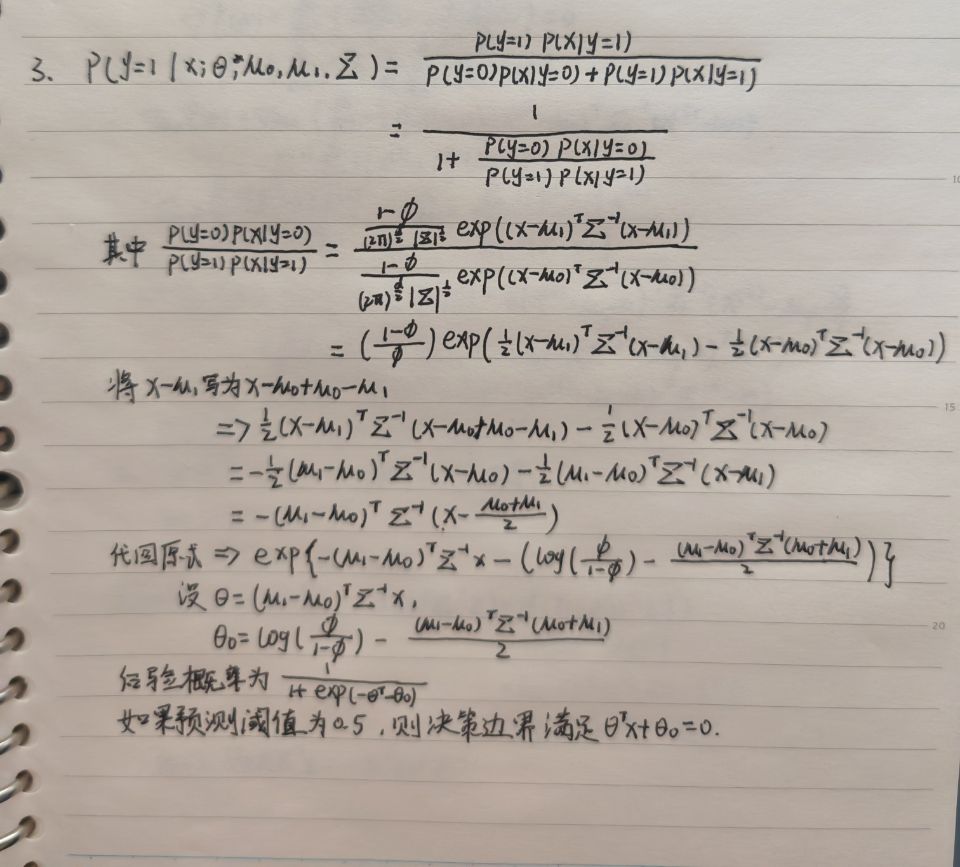 3. P(y=1 | x; θ; μ₀, μ₁, Σ) = P(y=1) P(x|y=1) / P(y=0)P(x|y=0) + P(y=1) P(x|y=1)
= 1 / 1 + P(y=0) P(x|y=0) / P(y=1) P(x|y=1)
其中 P(y=0)P(x|y=0) / P(y=1)P(x|y=1) = 1-φ / (2π)^{d/2} |Σ|^{1/2} exp((x-μ₁)ᵀ Σ⁻¹ (x-μ₁)) / 1-φ / (2π)^{d/2} |Σ|^{1/2} exp((x-μ₀)ᵀ Σ⁻¹ (x-μ₀))
= (1-φ / φ) exp(½(x-μ₁)ᵀ Σ⁻¹ (x-μ₁) - ½(x-μ₀)ᵀ Σ⁻¹ (x-μ₀))
将 x-μ₁ 写为 x-μ₀+μ₀-μ₁
=> ½(x-μ₁)ᵀ Σ⁻¹ (x-μ₀+μ₀-μ₁) - ½(x-μ₀)ᵀ Σ⁻¹ (x-μ₀)
= -½(μ₁-μ₀)ᵀ Σ⁻¹ (x-μ₀) - ½(μ₁-μ₀)ᵀ Σ⁻¹ (x-μ₁)
= -(μ₁-μ₀)ᵀ Σ⁻¹ (x - μ₀+μ₁ / 2)
代回原式 => exp{-(μ₁-μ₀)ᵀ Σ⁻¹ x - (log(φ / 1-φ) - (μ₁-μ₀)ᵀ Σ⁻¹ (μ₀+μ₁) / 2)}
设 θ = (μ₁-μ₀)ᵀ Σ⁻¹ x,
θ₀ = log(φ / 1-φ) - (μ₁-μ₀)ᵀ Σ⁻¹ (μ₀+μ₁) / 2
后验概率为 1 / 1+ exp(-θᵀ-θ₀)
如果预测阈值为0.5,则决策边界满足 θᵀx+θ₀=0.
10
15
20